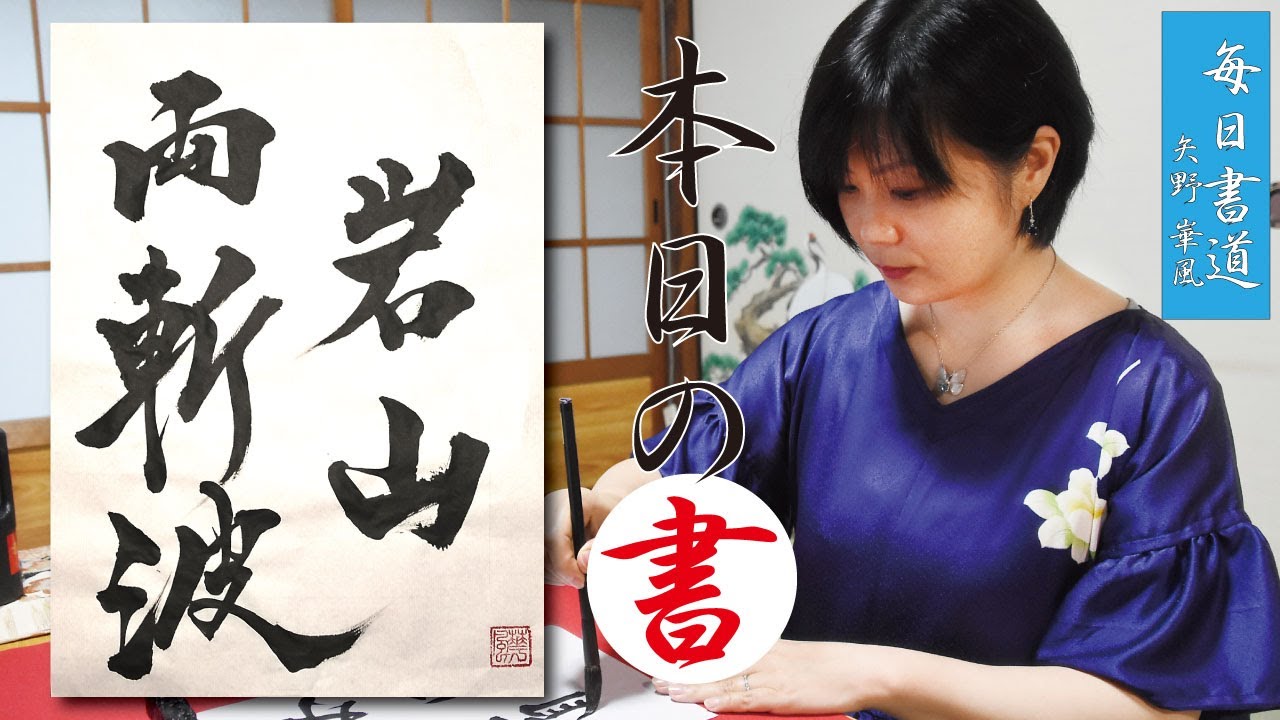 岩山
雨斬波
本日の書
毎日書道
矢野華風